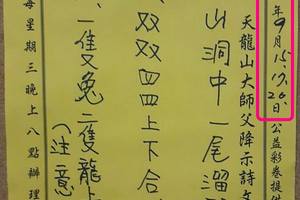 年9月15.17.20.日公益彩卷提供
天龍山大師父降示詩文
山洞中一尾溜
双双四四上下合
一隻兔二隻龍上
(注意
每星期三晚上八點辦理